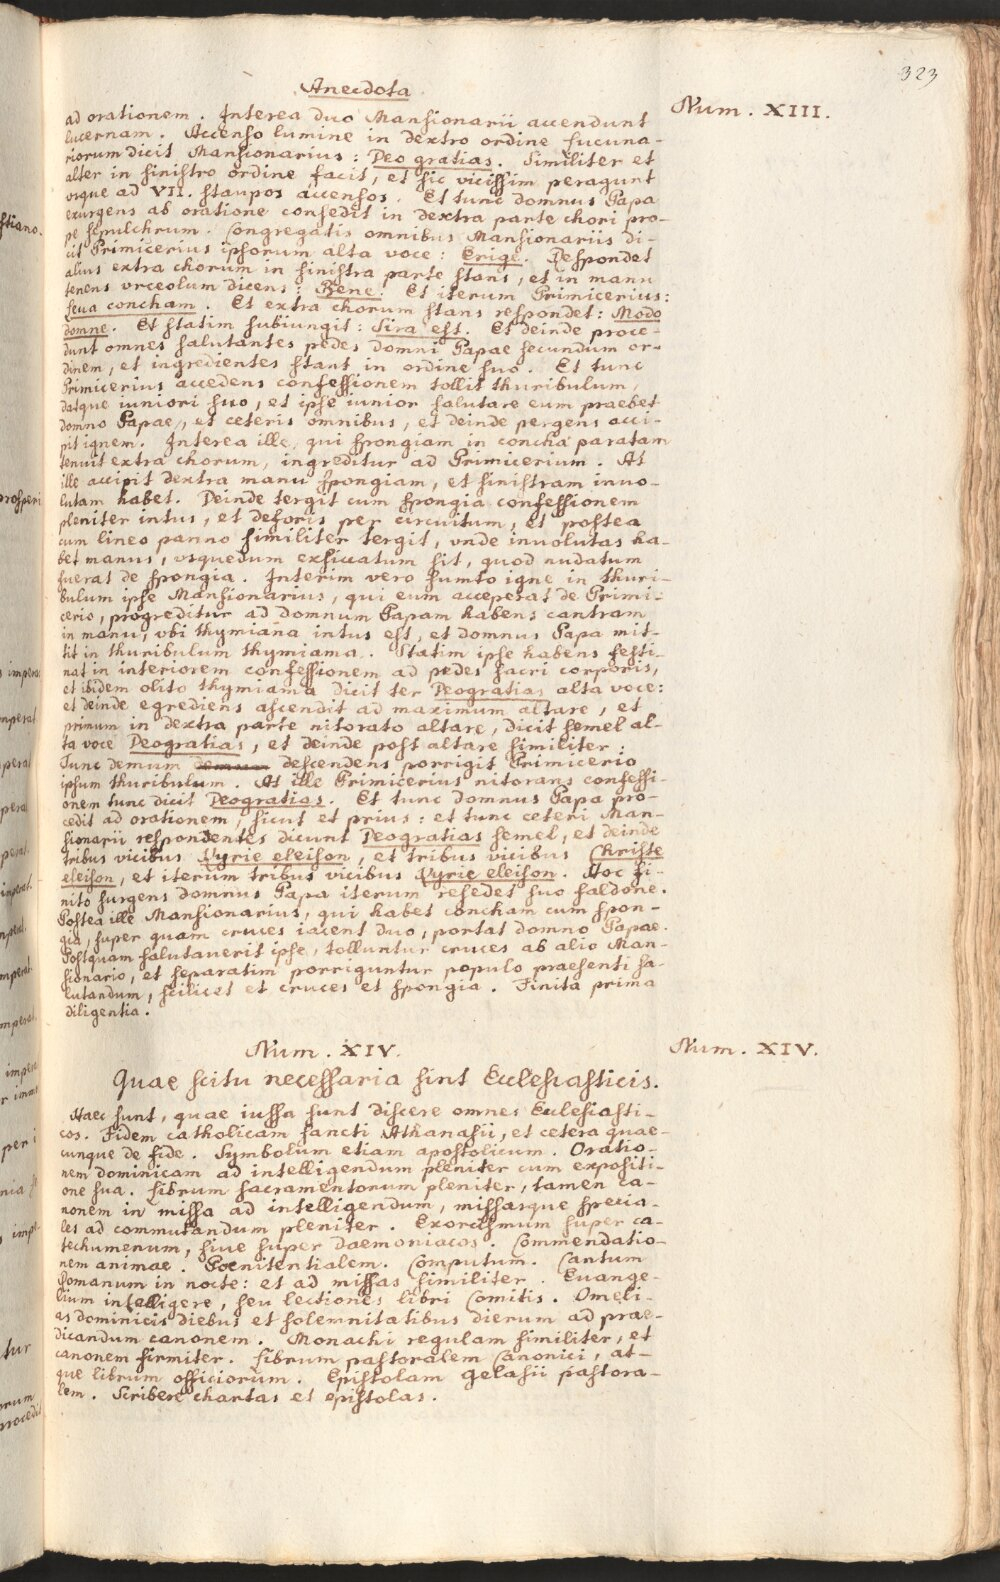 323
Anecdota
Num. XIII.
ad orationem. Interea duo Mansionarii accendunt
lucernam. Accenso lumine in dextro ordine Lucuna-
riorum dicit Mansionarius: Deo gratias. Similiter et
alter in sinistro ordine facit, et sic vicissim peragunt
vsque ad VII. staupos accensos. Et tunc domnus Papa
exurgens ab oratione consedit in dextra parte chori pro-
pe sepulchrum. Congregatis omnibus Mansionariis di-
cit Primicerius ipsorum alta voce: Erige. Respondet
alius extra chorum in sinistra parte stans, et in manu
tenens vrceolum dicens: Bene. Et iterum Primicerius:
Leua concham. Et extra chorum stans respondet: Modo
domne. Et statim subiungit: Sira est. Et deinde proce-
dunt omnes salutantes pedes domni Papae secundum or-
dinem, et ingredientes stant in ordine suo. Et tunc
Primicerius accedens confessionem tollit thuribulum,
datque iuniori suo, et ipse iunior salutare eum praebet
domno Papae, et ceteris omnibus, et deinde pergens acci-
pit ignem. Interea ille, qui spongiam in concha paratam
tenuit extra chorum, ingreditur ad Primicerium. At
ille accipit dextra manu spongiam, et sinistram inuo-
lutam habet. Deinde tergit cum spongia confessionem
pleniter intus, et deforis per circuitum, et postea
cum lineo panno similiter tergit, vnde inuolutas ha-
bet manus, vsquedum exsiccatum sit, quod nudatum
fuerat de spongia. Interim vero sumto igne in thuri-
bulum ipse Mansionarius, qui eum acceperat de Primi-
cerio, progreditur ad domnum Papam habens cantram
in manu, vbi thymiana intus est, et domnus Papa mit-
tit in thuribulum thymiama. Statim ipse habens festi-
nat in interiorem confessionem ad pedes sacri corporis,
et ibidem olito thymiama dicit ter Deogratias alta voce:
et deinde egrediens ascendit ad maximum altare, et
primum in dextra parte nitorato altare, dicit semel al-
ta voce Deogratias, et deinde post altare similiter:
Tunc demum descendens porrigit Primicerio
ipsum thuribulum. At ille Primicerius nitorans confessi-
onem tunc dicit Deogratias. Et tunc domnus Papa pro-
cedit ad orationem, sicut et prius: et tunc ceteri Man-
sionarii respondentes dicunt Deogratias semel, et deinde
tribus vicibus Kyrie eleison, et tribus vicibus Christe
eleison, et iterum tribus vicibus Kyrie eleison. Hoc fi-
nito surgens domnus Papa iterum resedet suo faldone.
Postea ille Mansionarius, qui habet concham cum spon-
gia, super quam cruces iacent duo, portat domno Papae.
Postquam salutauerit ipse, tolluntur cruces ab alio Man-
sionario, et separatim porriguntur populo praesenti sa-
lutandum, scilicet et cruces et spongia. Finita prima
diligentia.
Num. XIV.
Num. XIV.
Quae scitu necessaria sint Ecclesiasticis.
Haec sunt, quae iussa sunt discere omnes Ecclesiasti-
cos. Fidem catholicam sancti Athanasii, et cetera quae-
cunque de fide. Symbolum etiam apostolicum. Oratio-
nem dominicam ad intelligendum pleniter cum expositi-
one sua. Librum sacramentorum pleniter, tamen ca-
nonem in missa ad intelligendum, missasque specia-
les ad commutandum pleniter. Exorcismum super ca-
techumenum, siue super daemoniacos. Commendatio-
nem animae. Poenitentialem. Computum. Cantum
Romanum in nocte: et ad missas similiter. Euange-
lium intelligere, seu lectiones libri Comitis. Omeli-
as dominicis diebus et solemnitatibus dierum ad prae-
dicandum canonem. Monachi regulam similiter, et
canonem firmiter. Librum pastoralem Canonici, at-
que librum officiorum. Epistolam Gelasii pastora-
lem. Scribere chartas et epistolas.